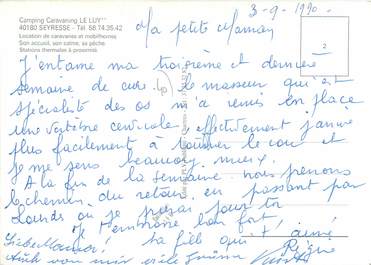 Camping Caravaning LE LUY
40180 SEYRESSE - Tél. 58.74.35.42
Location de caravanes et mobilhomes
Son accueil, son calme, sa pêche
Stations thermales à proximité
3-9-1990
Ma petite Maman
2
J'entame ma troisième et dernière
semaine de cure. Le masseur qui est
spécialiste des os m'a remis en place
une vertèbre cervicale effectivement j'arrive
plus facilement à tourner le cou et
je me sens beaucoup mieux.
A la fin de la semaine nous prenons
le chemin du retour en passant par
Lourdes où je prierai pour toi
Je t'embrasse bien fort,
Liebe Mama! ta fille qui t'aime
Auch von mir viele Grüsse